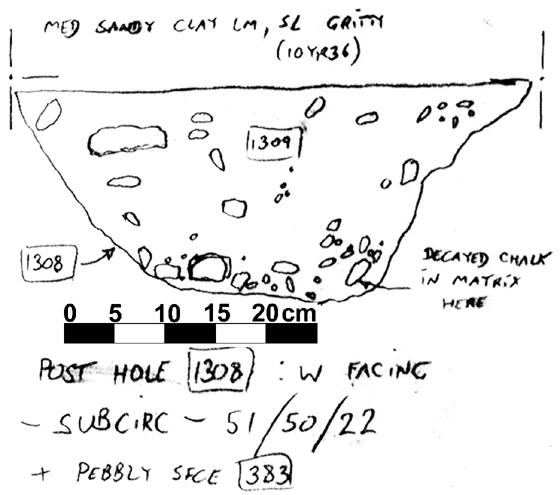 MED SANDY CLAY LM, SL GRITTY
(10YR36)
1309
1308
DECAYED CHALK
IN MATRIX
HERE
0 5 10 15 20 cm
POST HOLE 1308 : W FACING
- SUBCIRC - 51/50/22
+ PEBBLY SFCE 383